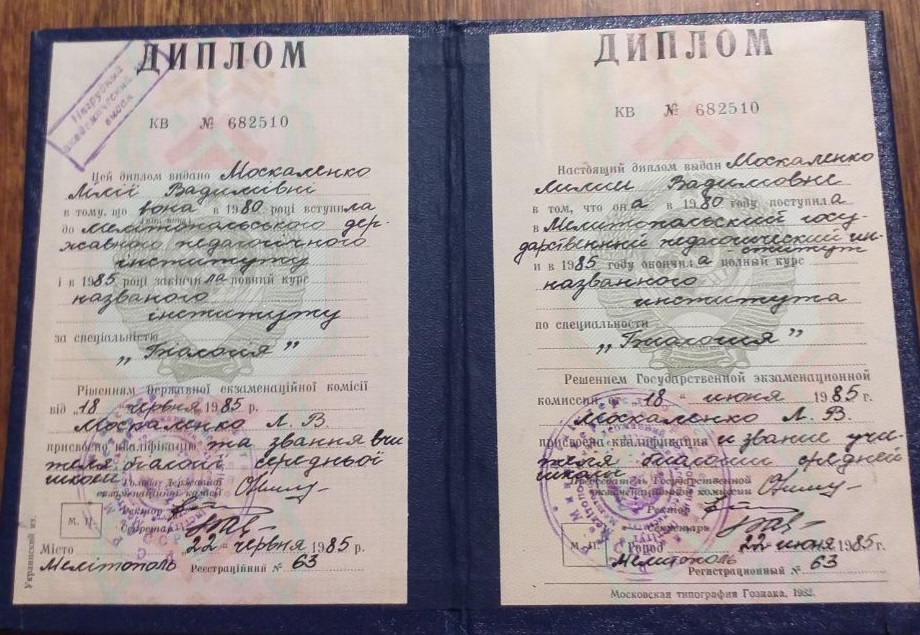 ДИПЛОМ
Нагрудний
академический
выдан
КВ № 682510
Цей диплом видано Москаленко
Лілії Вадимівні
в тому, що вона в 1980 році вступила
до Мелітопольського дер-
жавного педагогічного
інституту
і в 1985 році закінчила повний курс
названого
інституту
за спеціальністю
„Біологія”
Рішенням Державної екзаменаційної комісії
від „18” червня 1985 р.
Москаленко Л. В.
присвоєно кваліфікацію та звання вчи-
теля біології середньої
школи
Голова Державної
екзаменаційної комісії
Ректор
Секретар
М. П.
„22” червня 1985 р.
Місто
Мелітополь Реєстраційний № 63
Украинский яз.
ДИПЛОМ
КВ № 682510
Настоящий диплом выдан Москаленко
Лилии Вадимовне
в том, что она в 1980 году поступила
в Мелитопольский госу-
дарственный педагогический ин-
ститут
и в 1985 году окончила полный курс
названного
института
по специальности
„Биология”
Решением Государственной экзаменационной
комиссии от „18” июня 1985 г.
Москаленко Л. В.
присвоена квалификация и звание учи-
теля биологии средней
школы
Председатель Государственной
экзаменационной комиссии
Ректор
Секретарь
М. П.
Город 22 июня 1985 г.
Мелитополь
Регистрационный № 63
Московская типография Гознака. 1982.